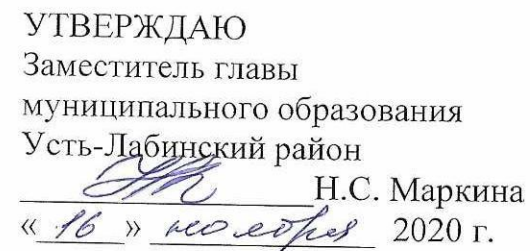 УТВЕРЖДАЮ
Заместитель главы
муниципального образования
Усть-Лабинский район
Н.С. Маркина
« 16 » ноября 2020 г.